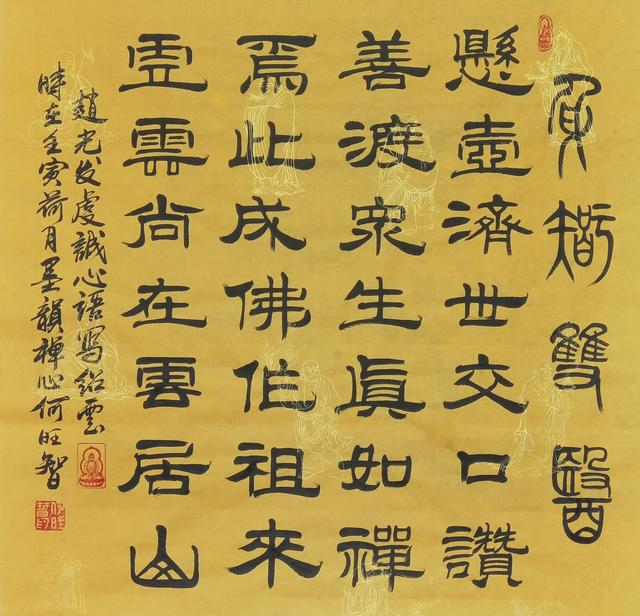 智雙醫
懸壺濟世交口讚
善渡眾生眞如禪
焉此成佛作祖來
虛雲尚在雲居山
趙光发虔誠心語寫紹雲
時在壬寅荷月墨韻禪心何旺智